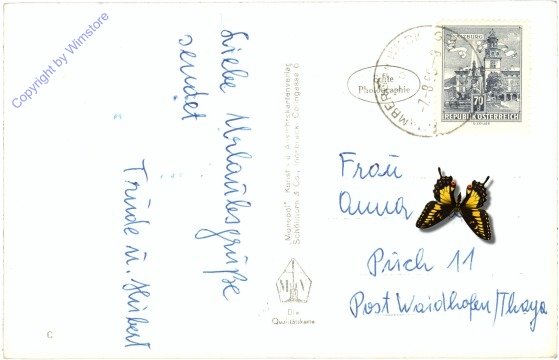 Copyright by Wimstore
Liebe Urlaubsgrüße
sendet
Trude u. Hubert
C
"Monopol" Kunst- u. Ansichtskartenverlag
Schöllhorn & Co., Innsbruck
M V
Die
Qualitätskarte
Echte
Photographie
SALZBURG
70
REPUBLIK ÖSTERREICH
Frau
Anna
Puch 11
Post Waidhofen/Thaya